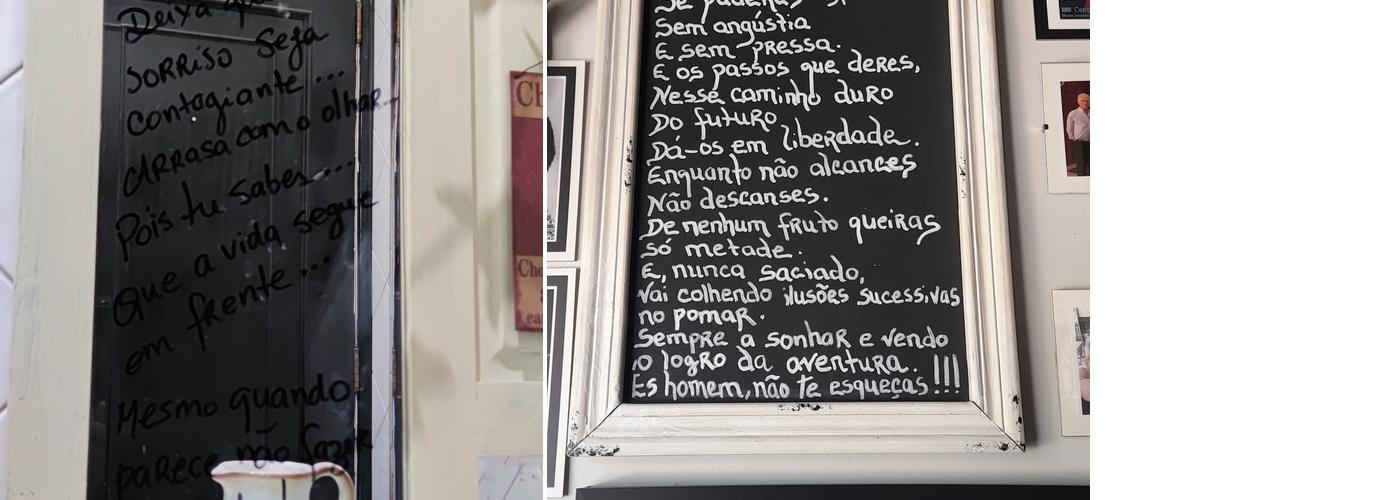 Deixa que
SORRISO seja
contagiante ...
ARRASA com o olhar...
Pois tu sabes ...
Que a vida segue
em frente ...
Mesmo quando
parece não fazer
Ch
Cho
Se puderes
Sem angústia
E sem pressa.
E os passos que deres,
Nesse caminho duro
Do futuro
Dá-os em liberdade.
Enquanto não alcances
Não descanses.
De nenhum fruto queiras
só metade.
E, nunca saciado,
Vai colhendo ilusões sucessivas
no pomar.
Sempre a sonhar e vendo
o logro da aventura.
És homem, não te esqueças!!!